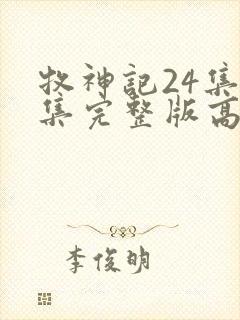 牧神記24集
集完整版高
李俊明